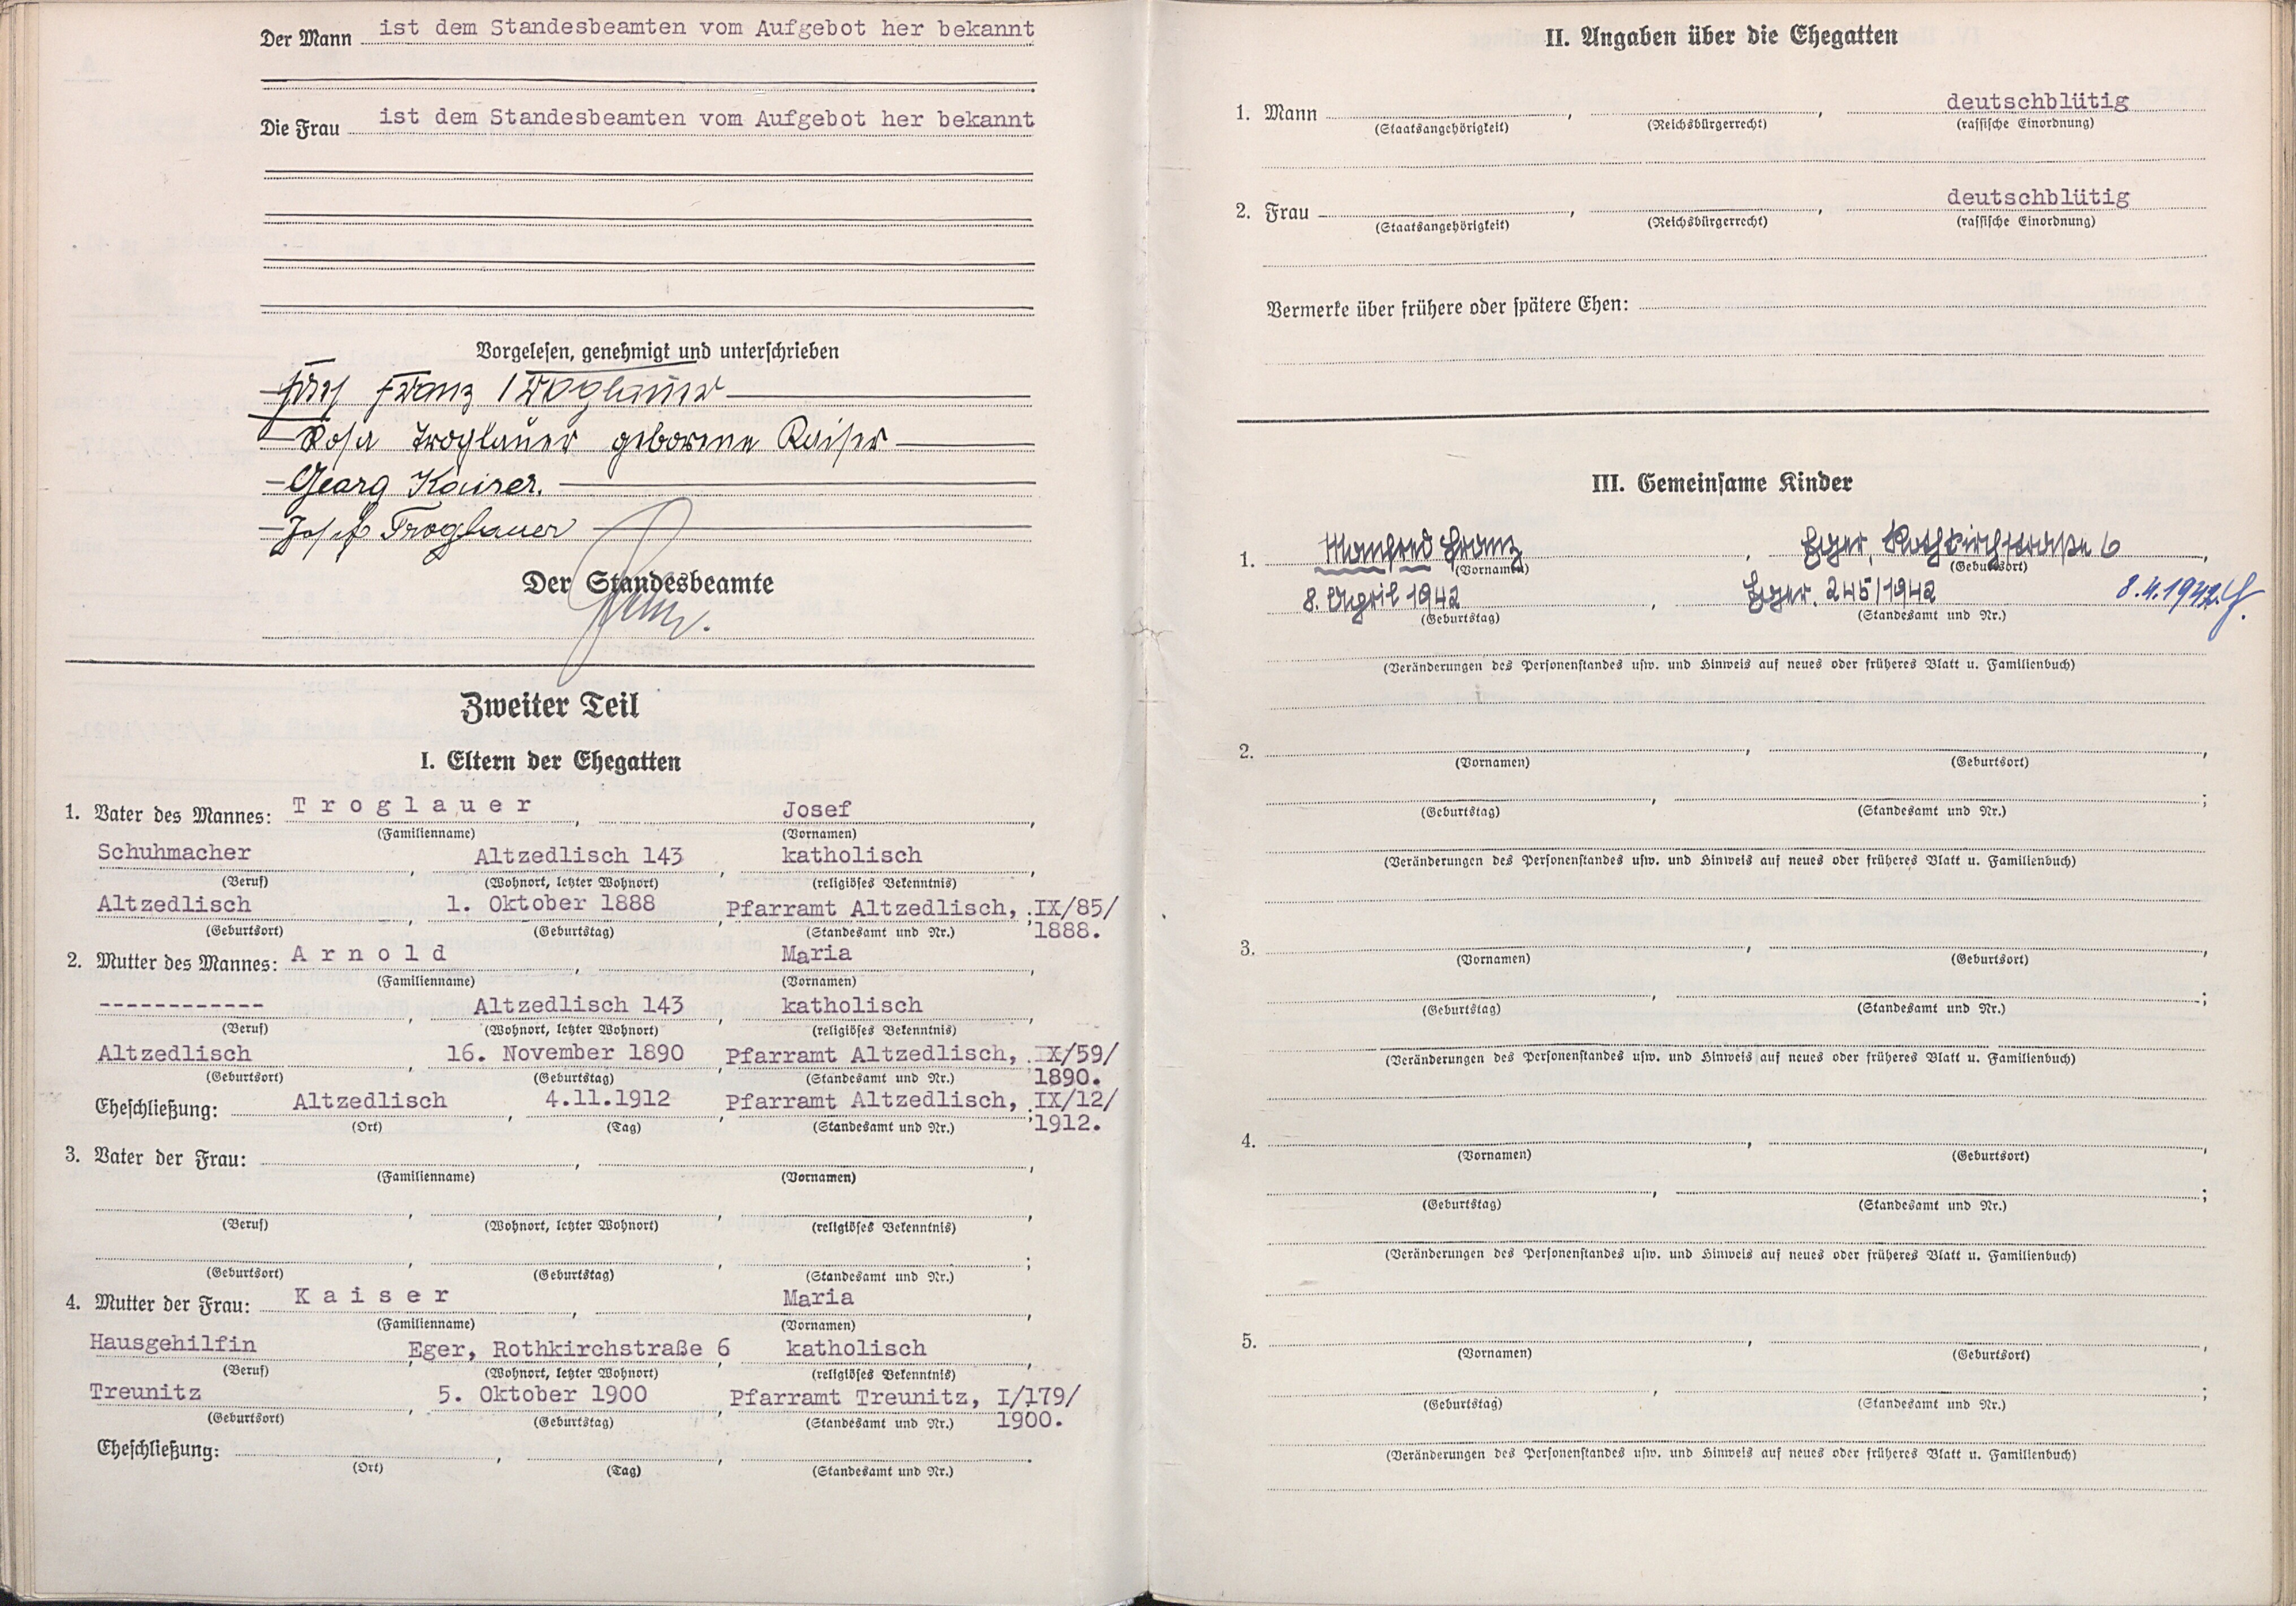 Der Mann ist dem Standesbeamten vom Aufgebot her bekannt
Die Frau ist dem Standesbeamten vom Aufgebot her bekannt
Vorgelesen, genehmigt und unterschrieben
Franz Troglauer
Rosa Troglauer geborene Kaiser
Georg Kaiser.
Josef Troglauer
Der Standesbeamte
Zweiter Teil
I. Eltern der Ehegatten
1. Vater des Mannes: Troglauer, Josef,
(Familienname) (Vornamen)
Schuhmacher, Altzedlisch 143, katholisch,
(Beruf) (Wohnort, letzter Wohnort) (religiöses Bekenntnis)
Altzedlisch, 1. Oktober 1888, Pfarramt Altzedlisch, IX/85/
(Geburtsort) (Geburtstag) (Standesamt und Nr.) 1888.
2. Mutter des Mannes: Arnold, Maria,
(Familienname) (Vornamen)
------------, Altzedlisch 143, katholisch,
(Beruf) (Wohnort, letzter Wohnort) (religiöses Bekenntnis)
Altzedlisch, 16. November 1890, Pfarramt Altzedlisch, IX/59/
(Geburtsort) (Geburtstag) (Standesamt und Nr.) 1890.
Eheschließung: Altzedlisch, 4.11.1912, Pfarramt Altzedlisch, IX/12/
(Ort) (Tag) (Standesamt und Nr.) 1912.
3. Vater der Frau: , ,
(Familienname) (Vornamen)
(Beruf) (Wohnort, letzter Wohnort) (religiöses Bekenntnis)
(Geburtsort) (Geburtstag) (Standesamt und Nr.)
4. Mutter der Frau: Kaiser, Maria,
(Familienname) (Vornamen)
Hausgehilfin, Eger, Rothkirchstraße 6, katholisch,
(Beruf) (Wohnort, letzter Wohnort) (religiöses Bekenntnis)
Treunitz, 5. Oktober 1900, Pfarramt Treunitz, I/179/
(Geburtsort) (Geburtstag) (Standesamt und Nr.) 1900.
Eheschließung: , , .
(Ort) (Tag) (Standesamt und Nr.)
II. Angaben über die Ehegatten
1. Mann , , deutschblütig
(Staatsangehörigkeit) (Reichsbürgerrecht) (rassische Einordnung)
2. Frau , , deutschblütig
(Staatsangehörigkeit) (Reichsbürgerrecht) (rassische Einordnung)
Vermerke über frühere oder spätere Ehen:
III. Gemeinsame Kinder
1. Manfred Franz, Eger, Rothkirchstraße 6,
(Vornamen) (Geburtsort)
8. April 1942, Eger. 245/1942 8.4.1942.
(Geburtstag) (Standesamt und Nr.)
(Veränderungen des Personenstandes usw. und Hinweis auf neues oder früheres Blatt u. Familienbuch)
2. , ,
(Vornamen) (Geburtsort)
, ;
(Geburtstag) (Standesamt und Nr.)
(Veränderungen des Personenstandes usw. und Hinweis auf neues oder früheres Blatt u. Familienbuch)
3. , ,
(Vornamen) (Geburtsort)
, ;
(Geburtstag) (Standesamt und Nr.)
(Veränderungen des Personenstandes usw. und Hinweis auf neues oder früheres Blatt u. Familienbuch)
4. , ,
(Vornamen) (Geburtsort)
, ;
(Geburtstag) (Standesamt und Nr.)
(Veränderungen des Personenstandes usw. und Hinweis auf neues oder früheres Blatt u. Familienbuch)
5. , ,
(Vornamen) (Geburtsort)
, ;
(Geburtstag) (Standesamt und Nr.)
(Veränderungen des Personenstandes usw. und Hinweis auf neues oder früheres Blatt u. Familienbuch)